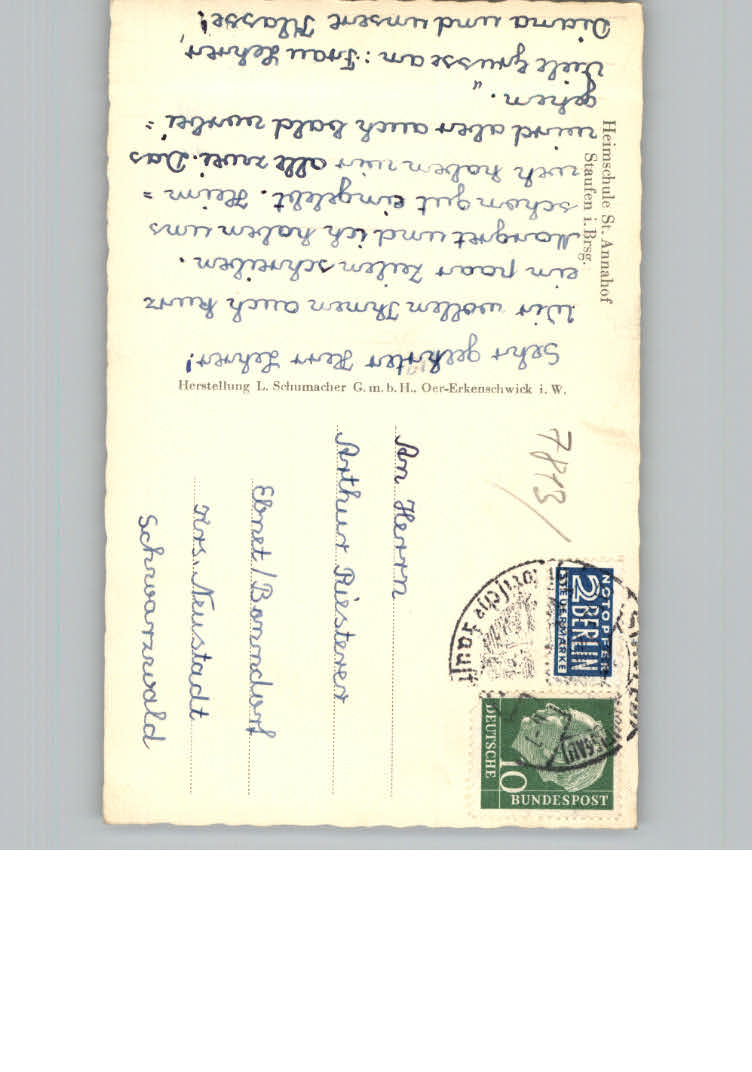 Heimschule St. Annahof
Staufen i. Brsg.
Sehr geehrter Herr Lehrer!
Wir wollen Ihnen auch kurz
ein paar Zeilen schreiben.
Margret und ich haben uns
schon gut eingelebt. Heim=
weh haben wir alle zwei. Das
wird aber auch bald vorbei=
gehen.
Viele Grüsse an: Frau Lehrer,
Diana und unsere Klasse!
Herstellung L. Schumacher G.m.b.H., Oer-Erkenschwick i. W.
An Herrn
Arthur Riesterer
Ebnet/Bonndorf
Krs. Neustadt
Schwarzwald
7813/
NOTOPFER
2 BERLIN
STEUERMARKE
DEUTSCHE
10
BUNDESPOST
STAUFEN
(BREISGAU)
Faust